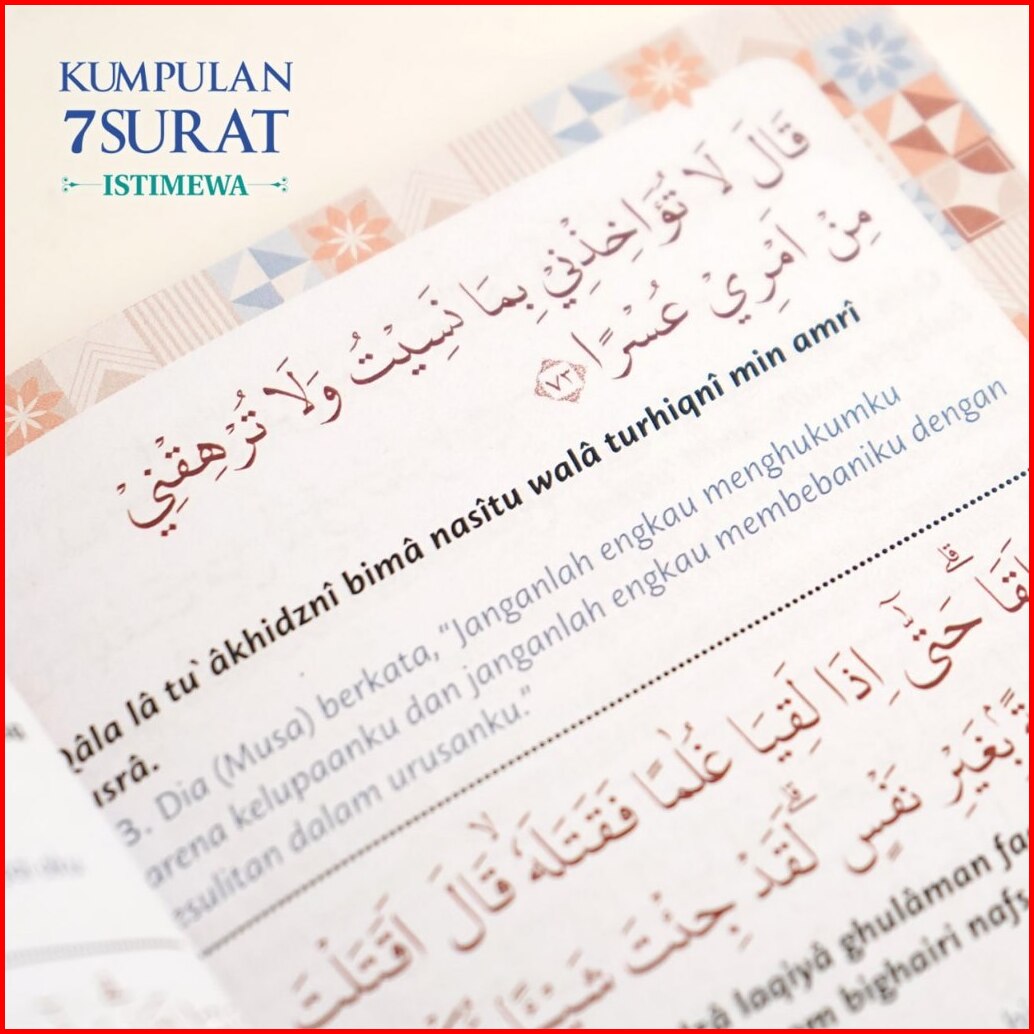 KUMPULAN
7SURAT
ISTIMEWA
قَالَ لَا تُؤَاخِذْنِيْ بِمَا نَسِيْتُ وَلَا تُرْهِقْنِيْ
مِنْ اَمْرِيْ عُسْرًا ٧٣
Qâla lâ tu`âkhidznî bimâ nasîtu walâ turhiqnî min amrî
usrâ.
3. Dia (Musa) berkata, “Janganlah engkau menghukumku
arena kelupaanku dan janganlah engkau membebaniku dengan
esulitan dalam urusanku.”
لَقَا حَتّٰىٓ اِذَا لَقِيَا غُلٰمًا فَقَتَلَهٗ قَالَ اَقَتَلْتَ
بِغَيْرِ نَفْسٍ لَقَدْ جِئْتَ شَيْـًٔا
laqiyâ ghulâman fa
bighairi nafs